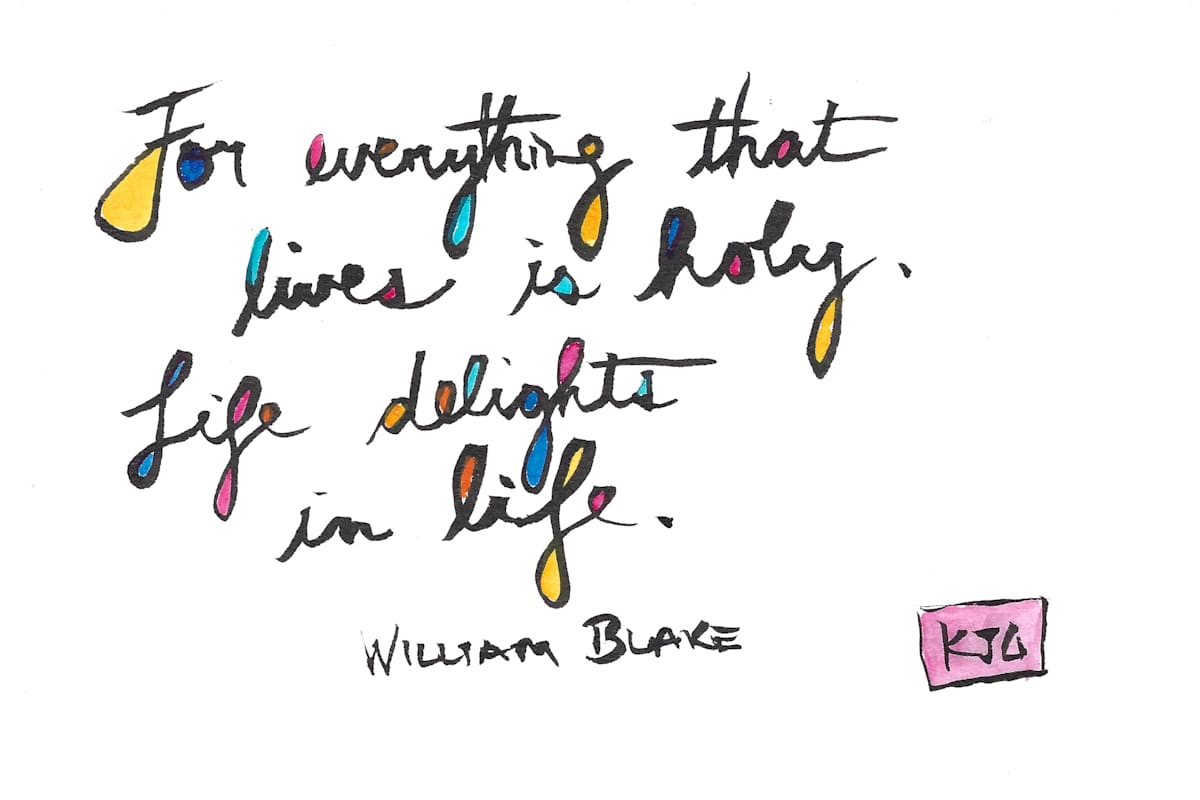 For everything that
lives is holy.
Life delights
in life.
WILLIAM BLAKE
KJG